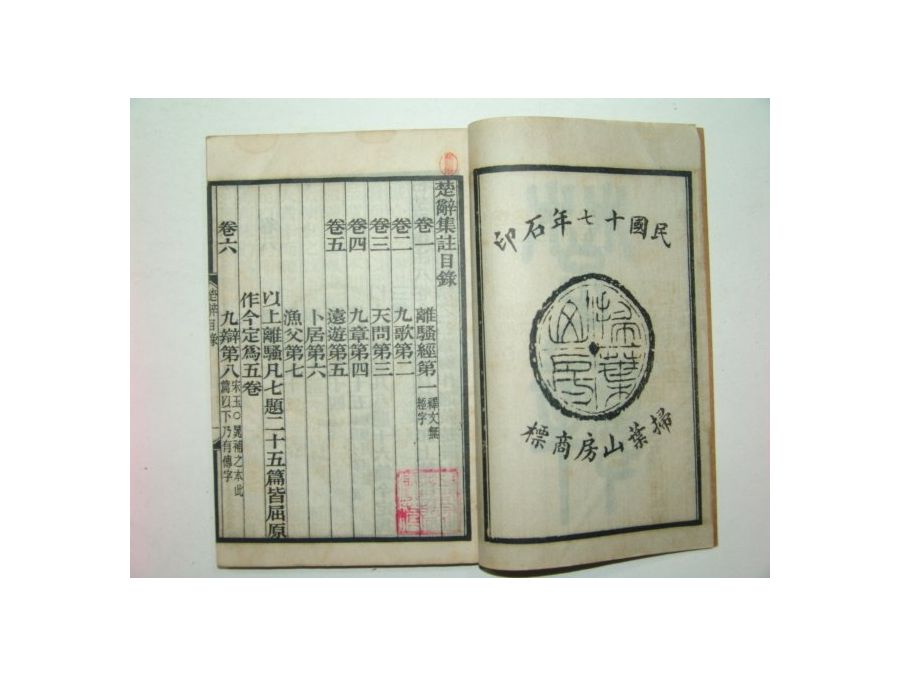 民國十七年石印
掃葉山房
掃葉山房商標
楚辭集註目錄
卷一 離騷經第一 釋文無經字
卷二 九歌第二
卷三 天問第三
卷四 九章第四
卷五 遠遊第五
卜居第六
漁父第七
以上離騷凡七題二十五篇皆屈原
作今定為五卷
卷六 九辯第八 宋玉○晁補之本此篇以下乃有傳字
楚辭目錄
一